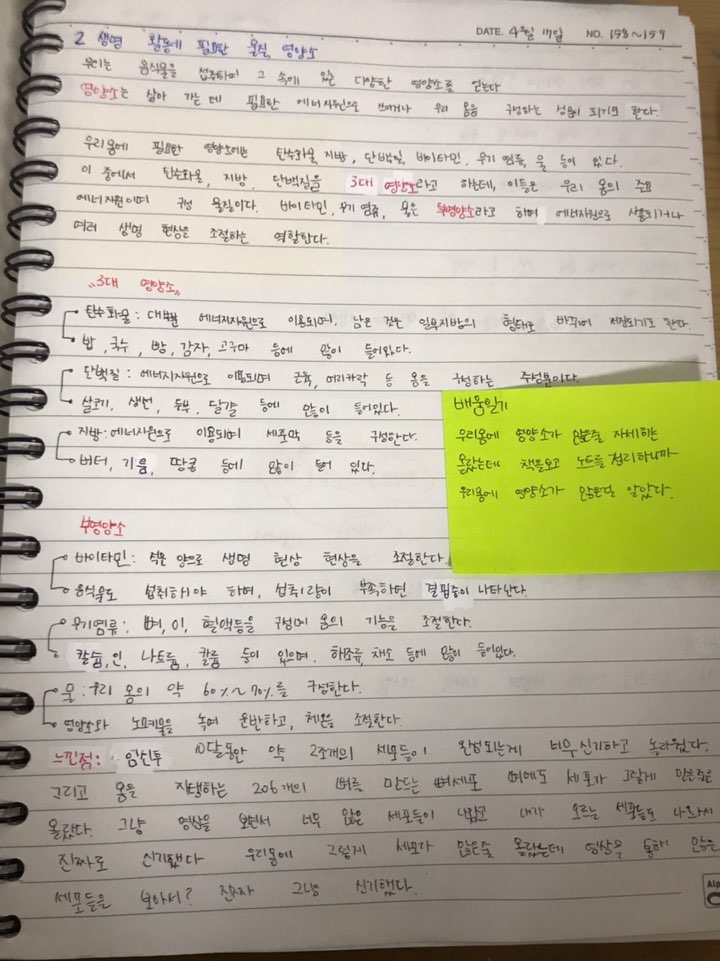 DATE. 4월 17일 NO. 158~159
2 생명 활동에 필요한 물질, 영양소
우리는 음식물을 섭취하여 그 속에 있는 다양한 영양소를 얻는다
영양소는 살아 가는 데 필요한 에너지원으로 쓰이거나 우리 몸을 구성하는 성분이 되기도 한다.
우리몸에 필요한 영양소에는 탄수화물, 지방, 단백질, 바이타민, 무기 염류, 물 등이 있다.
이 중에서 탄수화물, 지방, 단백질을 3대 영양소라고 하는데, 이들은 우리 몸의 주요
에너지원이며 구성 물질이다. 바이타민, 무기 염류, 물은 부영양소라고 하며 에너지원으로 사용되거나
여러 생명 현상을 조절하는 역할한다.
"3대 영양소"
탄수화물 : 대부분 에너지자원으로 이용되며, 남은 것은 일부지방의 형태로 바뀌어 저장되기도 한다.
밥, 국수, 빵, 감자, 고구마 등에 많이 들어있다.
단백질 : 에너지자원으로 이용되며 근육, 머리카락 등 몸을 구성하는 주성분이다.
살코기, 생선, 두부, 달걀 등에 많이 들어있다.
지방 : 에너지원으로 이용되며 세포막 등을 구성한다.
버터, 기름, 땅콩 등에 많이 들어 있다.
배움일기
우리몸에 영양소가 많은줄 자세히는
몰랐는데 책을보고 노트를 정리하니까
우리몸에 영양소가 많은걸 알았다.
부영양소
바이타민 : 적은 양으로 생명 현상 현상을 조절한다.
음식물로 섭취해야 하며, 섭취량이 부족하면 결핍증이 나타난다.
무기염류 : 뼈, 이, 혈액등을 구성하며 몸의 기능을 조절한다.
칼슘, 인, 나트륨, 칼륨 등이 있으며, 해조류, 채소 등에 많이 들어있다.
물 : 우리 몸의 약 60%~70%를 구성한다.
영양소와 노폐물을 녹여 운반하고, 체온을 조절한다.
느낀점 : 임신후 10달동안 약 2조개의 세포들이 완성되는게 너무 신기하고 놀라웠다.
그리고 몸을 지탱하는 206개의 뼈를 만드는 뼈세포 뼈에도 세포가 그렇게 많은줄은
몰랐다. 그냥 영상을 보면서 너무 많은 세포들이 나왔고 내가 모르는 세포들도 나와서
진짜로 신기했다 우리몸에 그렇게 세포가 많은줄 몰랐는데 영상을 통해 많은
세포들을 보아서? 진짜 그냥 신기했다.